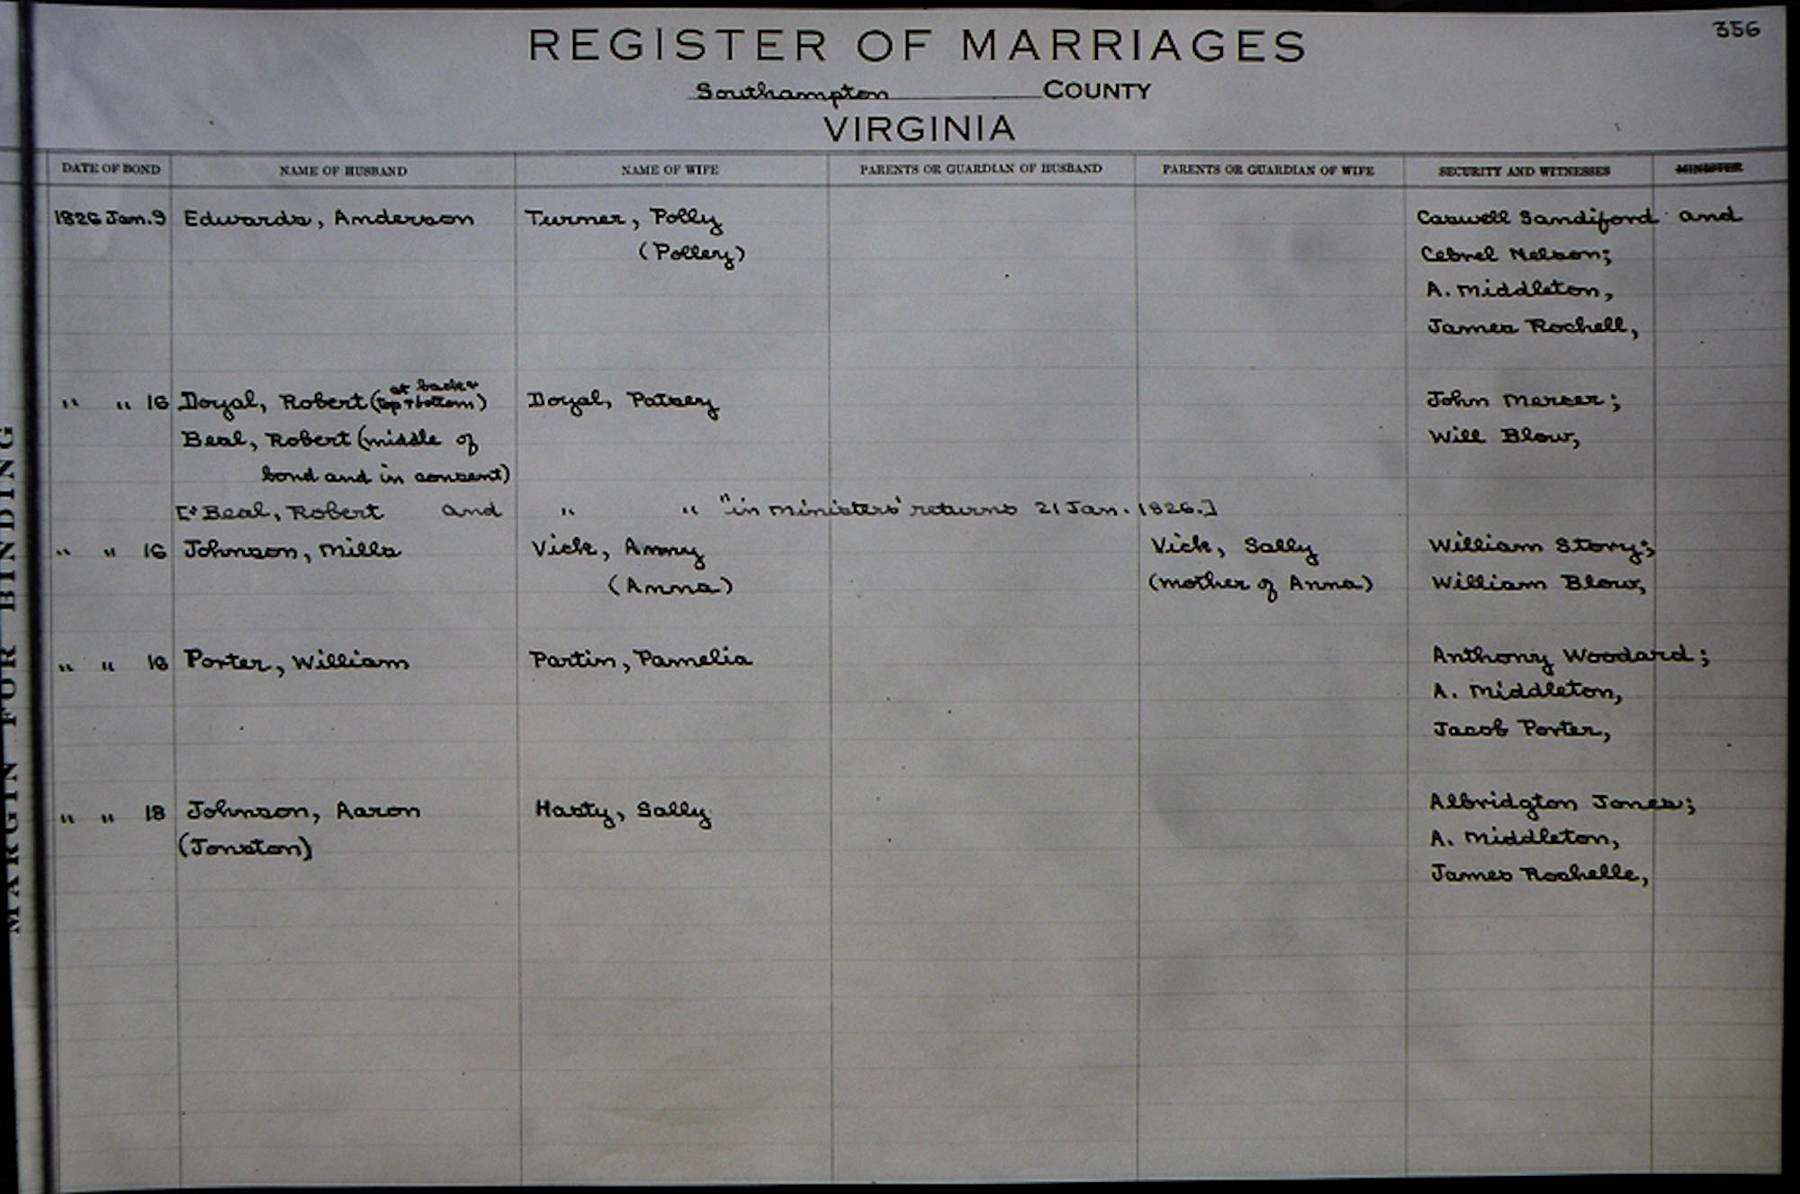 356
REGISTER OF MARRIAGES
Southampton COUNTY
VIRGINIA
DATE OF BOND NAME OF HUSBAND NAME OF WIFE PARENTS OR GUARDIAN OF HUSBAND PARENTS OR GUARDIAN OF WIFE SECURITY AND WITNESSES MINISTER
1826 Jan. 9 Edwards, Anderson Turner, Polly Caswell Sandiford and
(Polley) Cebrel Nelson;
A. Middleton,
James Rochell,
at back &
" " 16 Doyal, Robert (top & bottom) Doyal, Patsey John Mercer;
Beal, Robert (middle of Will Blow,
bond and in consent)
Beal, Robert and " " "in ministers' returns 21 Jan. 1826.]
" " 16 Johnson, Mills Vick, Anny Vick, Sally William Story;
(Anna) (mother of Anna) William Blow,
" " 16 Porter, William Partin, Pamelia Anthony Woodard;
A. Middleton,
Jacob Porter,
" " 18 Johnson, Aaron Hasty, Sally Albridgton Jones;
(Jonston) A. Middleton,
James Rochelle,
MARGIN FOR BINDING